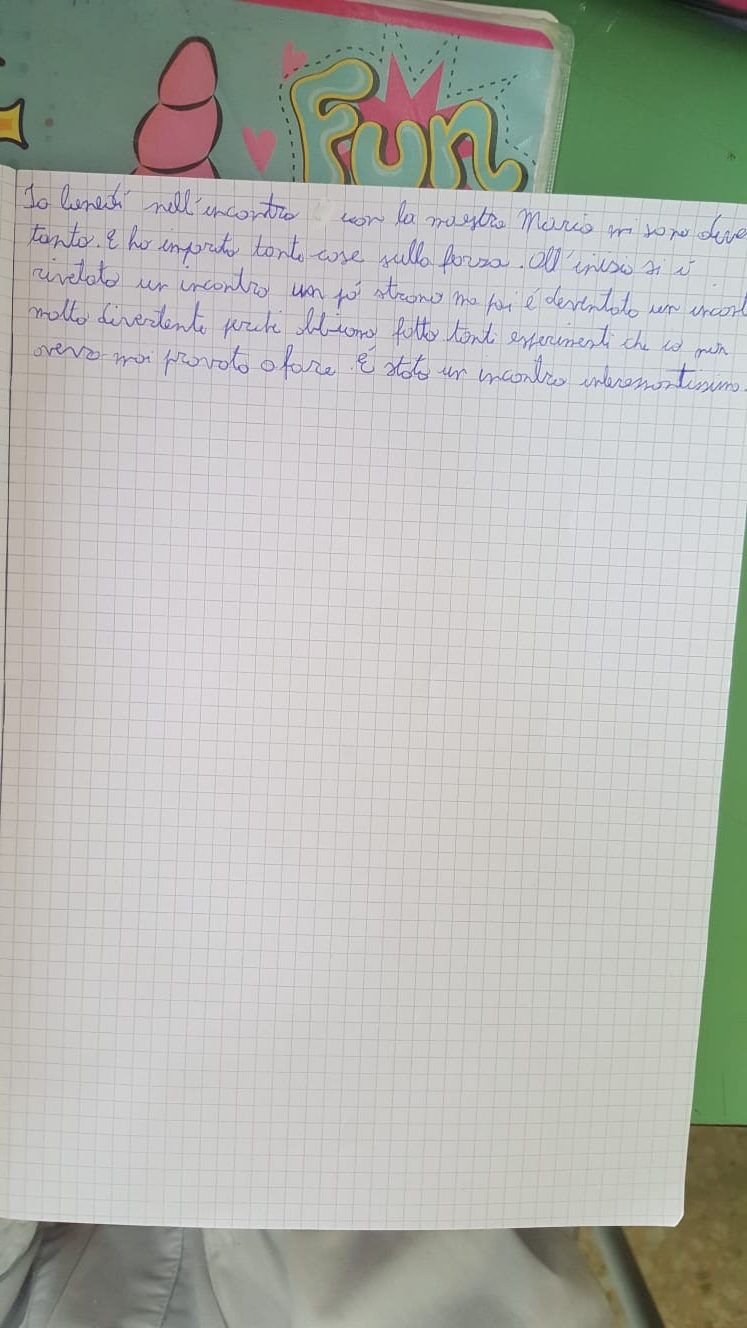 Fun
Io lunedì nell'incontro con la maestra Maria mi sono dive
tanto. E ho imparato tante cose sulla forza. All'inizio si è
rivelato un incontro un pó strano ma poi é deventato un incont
molto divertente perché abbiamo fatto tanti esperimenti che io non
avevo mai provato a fare. É stato un incontro interessantissimo.